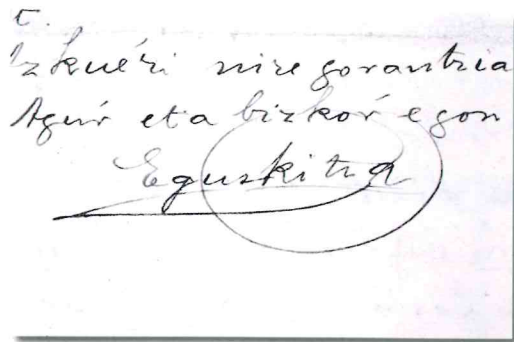 t.
Izkuéri nire gorantzia
Agur eta bizkoŕ egon
Eguskitza